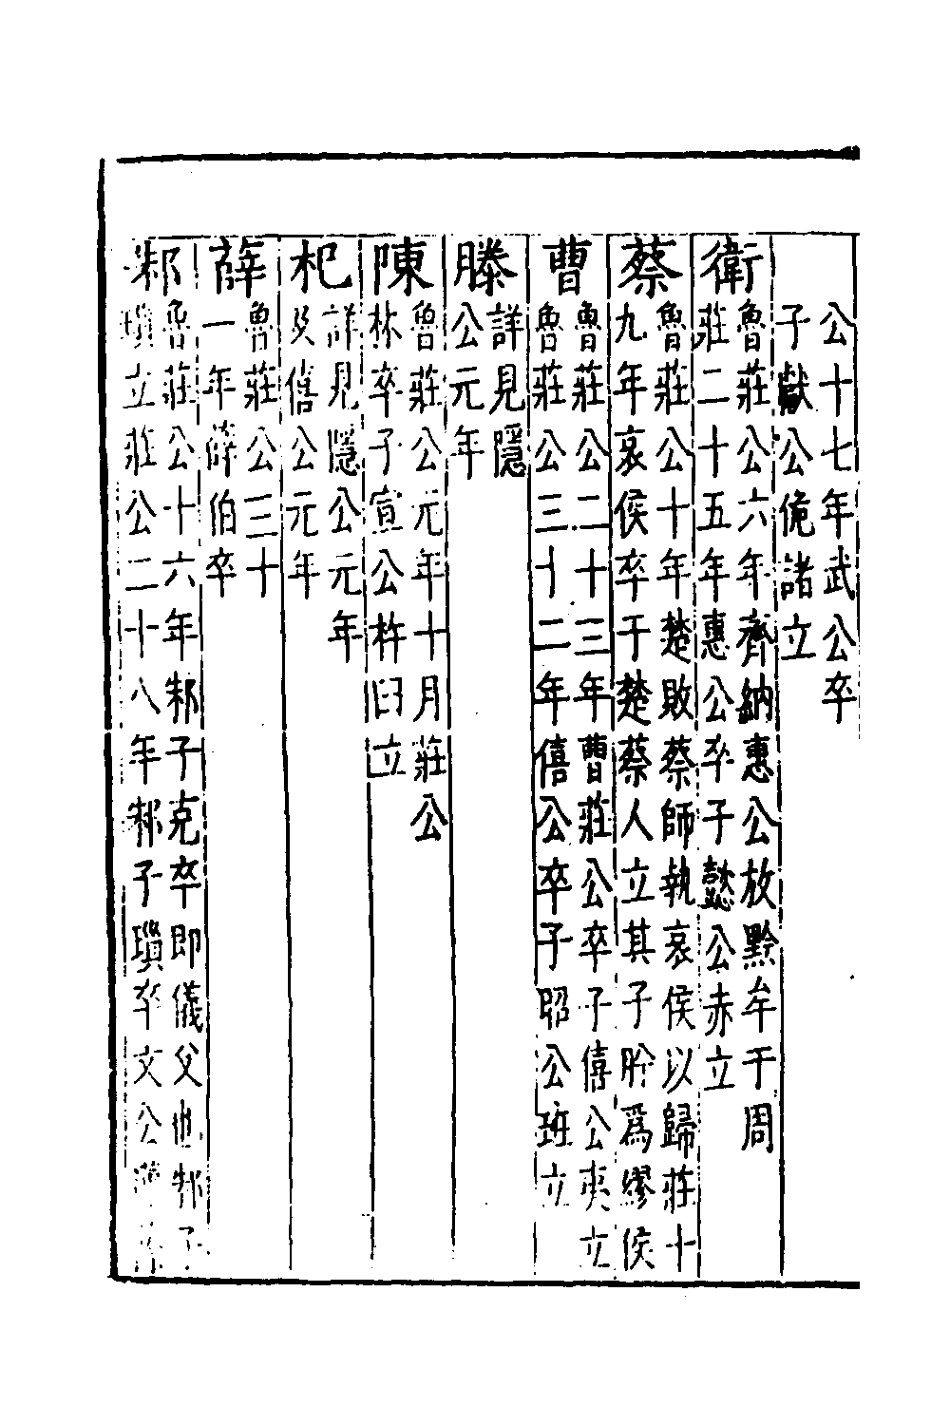 公十七年武公卒
子獻公佹諸立
衛
魯莊公六年齊納惠公放黔牟于周
莊二十五年惠公卒子懿公赤立
蔡
魯莊公十年楚敗蔡師執哀侯以歸莊十
九年哀侯卒于楚蔡人立其子肹爲繆侯
曹
魯莊公二十三年曹莊公卒子僖公夷立
魯莊公三十二年僖公卒子昭公班立
滕
詳見隱
公元年
陳
魯莊公元年十月莊公
林卒子宣公杵臼立
杞
詳見隱公元年
及僖公元年
薛
魯莊公三十
一年薛伯卒
邾
魯莊公十六年邾子克卒即儀父也邾子
瑣立莊公二十八年邾子瑣卒文公